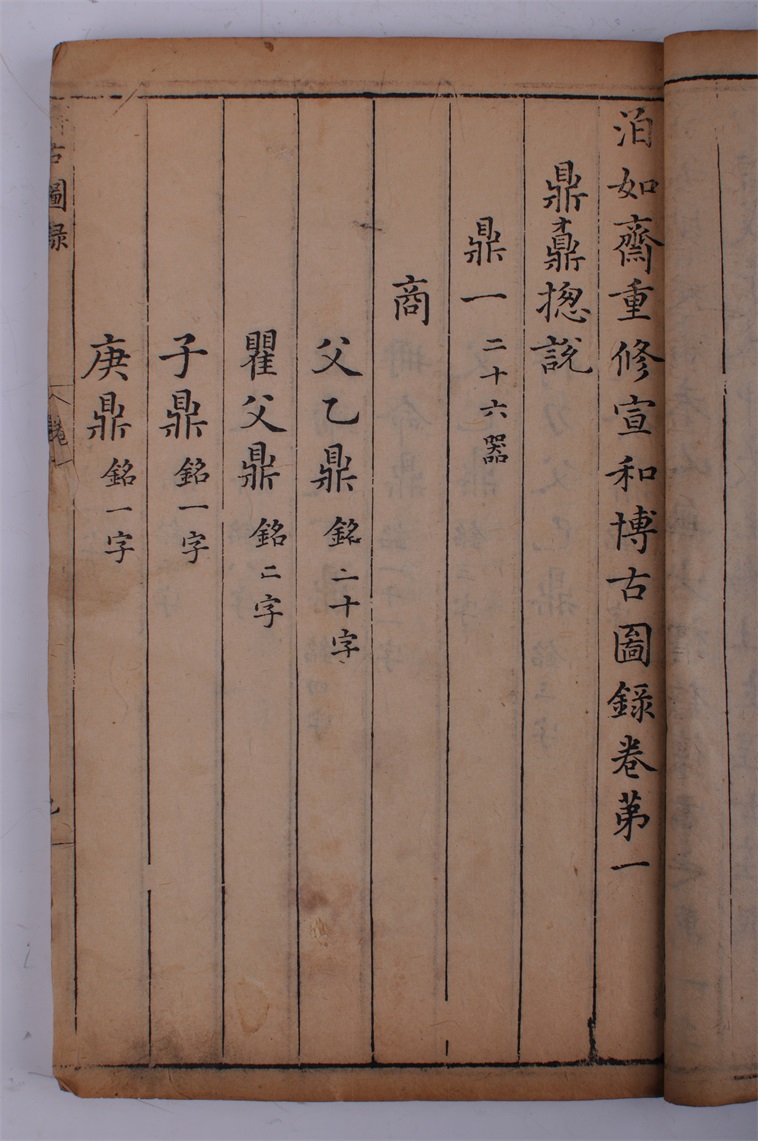 泊如齋重修宣和博古圖錄卷第一
鼎鼒揔說
鼎一 二十六器
商
父乙鼎 銘二十字
瞿父鼎 銘二字
子鼎 銘一字
庚鼎 銘一字
古圖錄